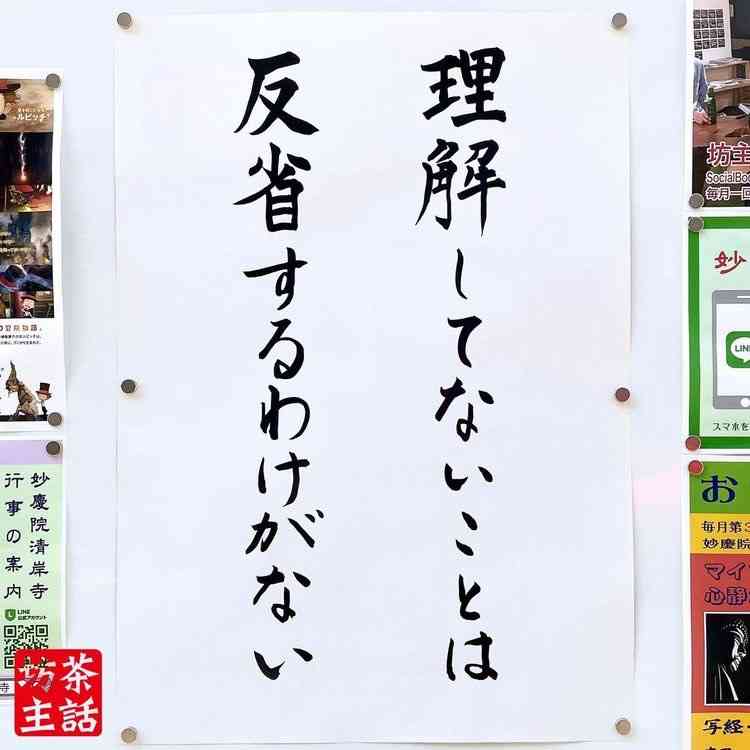 理解してないことは
反省するわけがない
ルビッチ
妙慶院清岸寺
行事の案内
LINE
公式アカウント
坊主
SocialBo
毎月一回
妙
LINE
スマホを
お
毎月第3
妙慶院
マイ
心静
写経
茶話
坊主